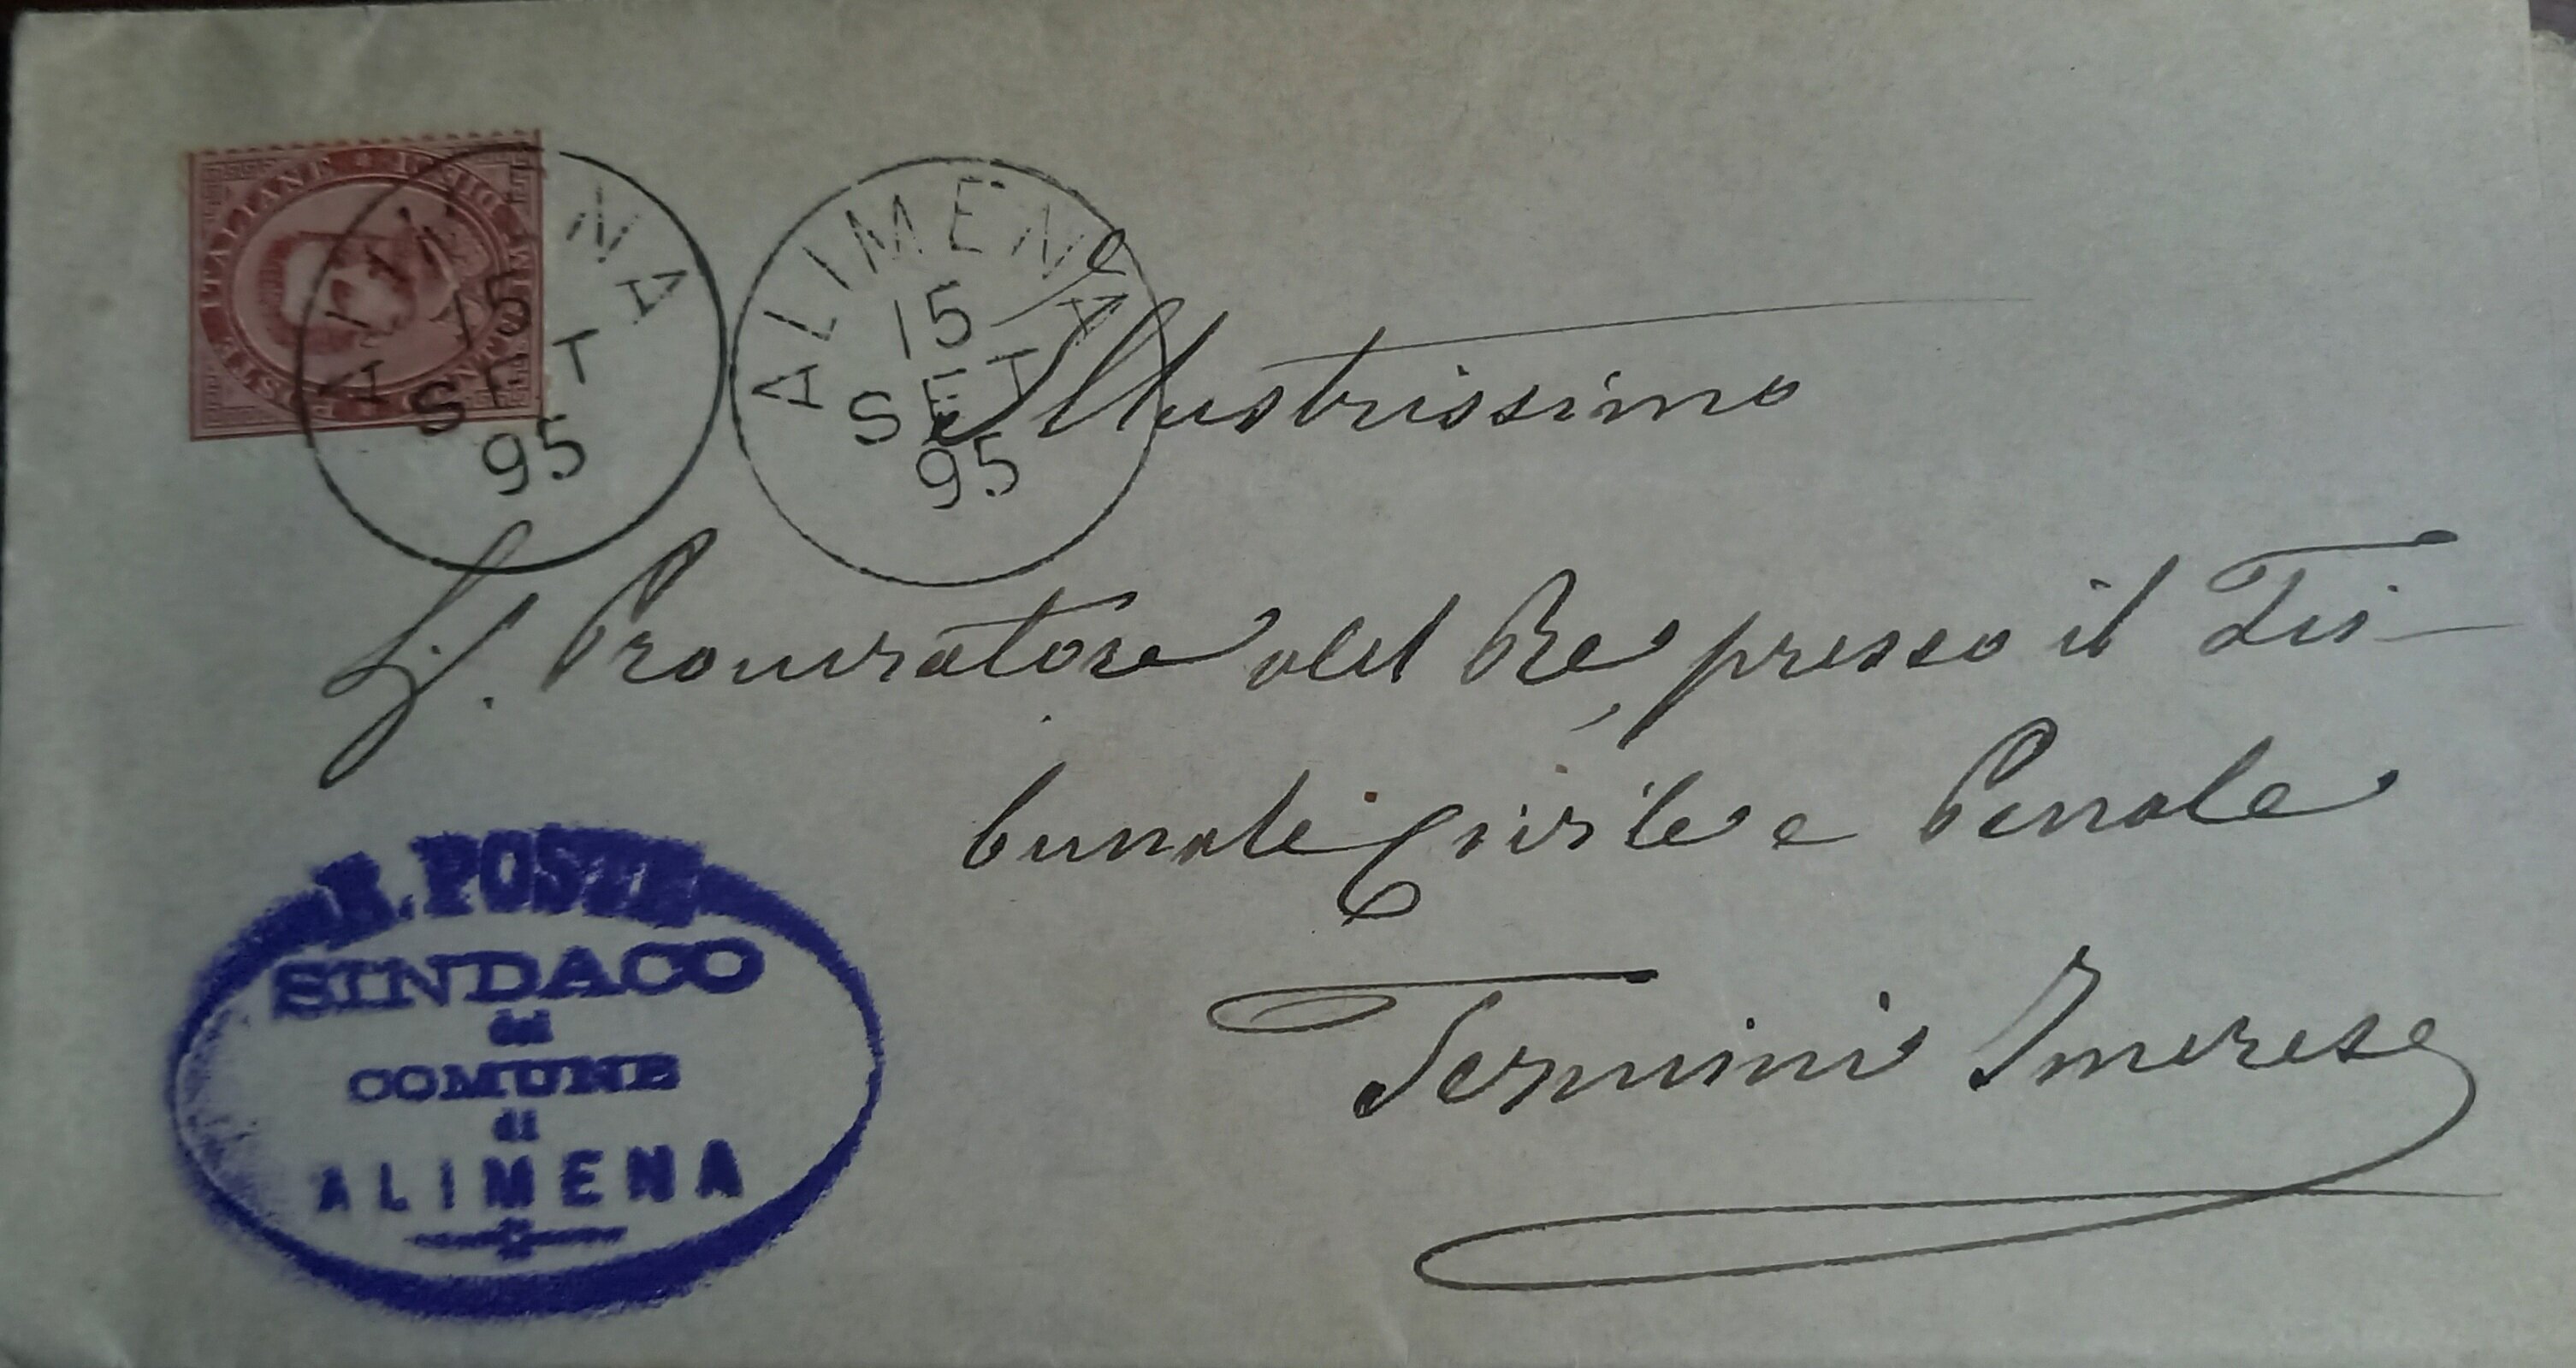 POSTE ITALIANE
ALIMENA
15
SET
95
ALIMENA
15
SET
95
Illustrissimo
Sig. Procuratore del Re, presso il Tri-
bunale Civile e Penale
Termini Imerese
R. POSTE
SINDACO
del
COMUNE
di
ALIMENA